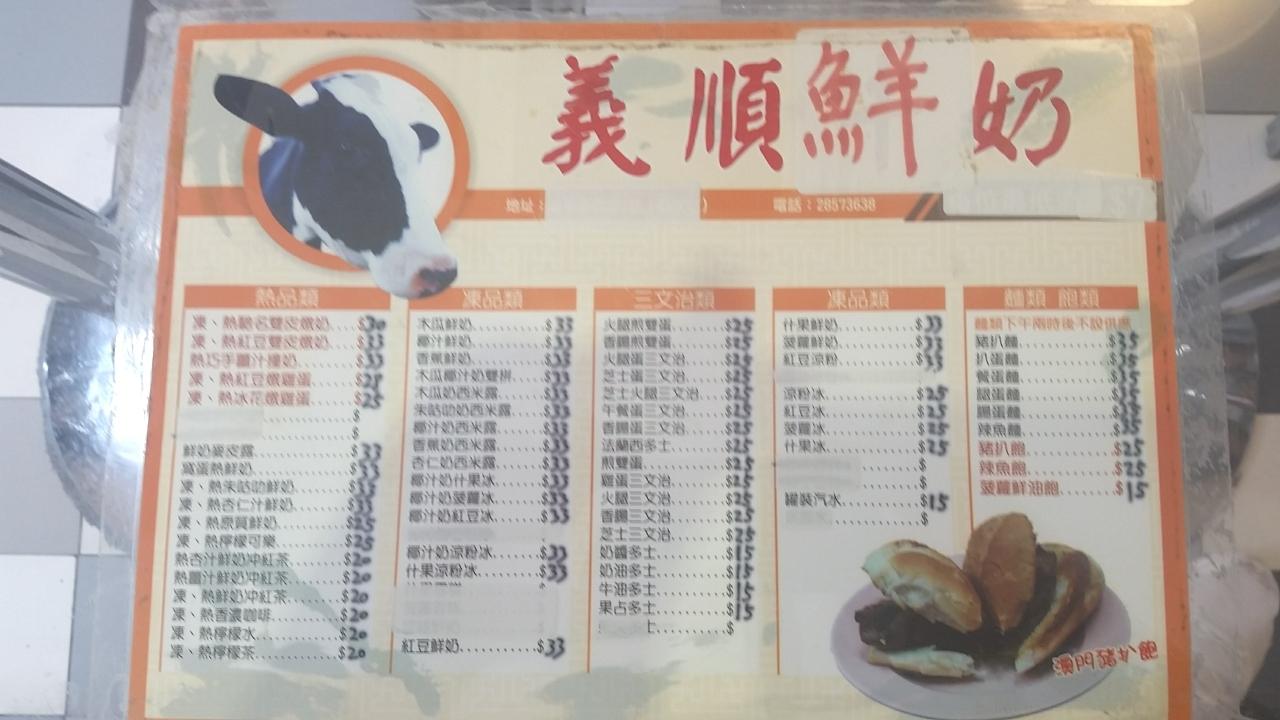 義順鮮奶
地址： ） 電話：28573638
熱品類
凍、熱馳名雙皮燉奶....$30
凍、熱紅豆雙皮燉奶....$33
熱巧手薑汁撞奶....$33
凍、熱紅豆燉雞蛋....$25
凍、熱冰花燉雞蛋....$25
$
$
鮮奶麥皮露....$33
窩蛋熱鮮奶....$33
凍、熱朱咕叻鮮奶....$33
凍、熱杏仁汁鮮奶....$33
凍、熱原質鮮奶....$25
凍、熱檸檬可樂....$25
熱杏汁鮮奶冲紅茶....$20
熱薑汁鮮奶冲紅茶....$20
凍、熱鮮奶冲紅茶....$20
凍、熱香濃咖啡....$20
凍、熱檸檬水....$20
凍、熱檸檬茶....$20
凍品類
木瓜鮮奶....$33
椰汁鮮奶....$33
香蕉鮮奶....$33
木瓜椰汁奶雙拼....$33
木瓜奶西米露....$33
朱咕叻奶西米露....$33
椰汁奶西米露....$33
香蕉奶西米露....$33
杏仁奶西米露....$33
椰汁奶什果冰....$33
椰汁奶菠蘿冰....$33
椰汁奶紅豆冰....$33
椰汁奶涼粉冰....$33
什果涼粉冰....$33
紅豆鮮奶....$33
三文治類
火腿煎雙蛋....$25
香腸煎雙蛋....$25
火腿蛋三文治....$25
芝士蛋三文治....$25
芝士火腿三文治....$25
午餐蛋三文治....$25
香腸蛋三文治....$25
法蘭西多士....$25
煎雙蛋....$25
雞蛋三文治....$25
火腿三文治....$25
香腸三文治....$25
芝士三文治....$25
奶醬多士....$15
奶油多士....$15
牛油多士....$15
果占多士....$15
$
凍品類
什果鮮奶....$33
菠蘿鮮奶....$33
紅豆涼粉....$33
涼粉冰....$25
紅豆冰....$25
菠蘿冰....$25
什果冰....$25
$
$
罐裝汽水....$15
$
麵類 飽類
麵類下午兩時後不設供應
豬扒麵....$35
扒蛋麵....$35
餐蛋麵....$35
腿蛋麵....$35
腸蛋麵....$35
辣魚麵....$35
豬扒飽....$25
辣魚飽....$25
菠蘿鮮油飽....$15
澳門豬扒飽